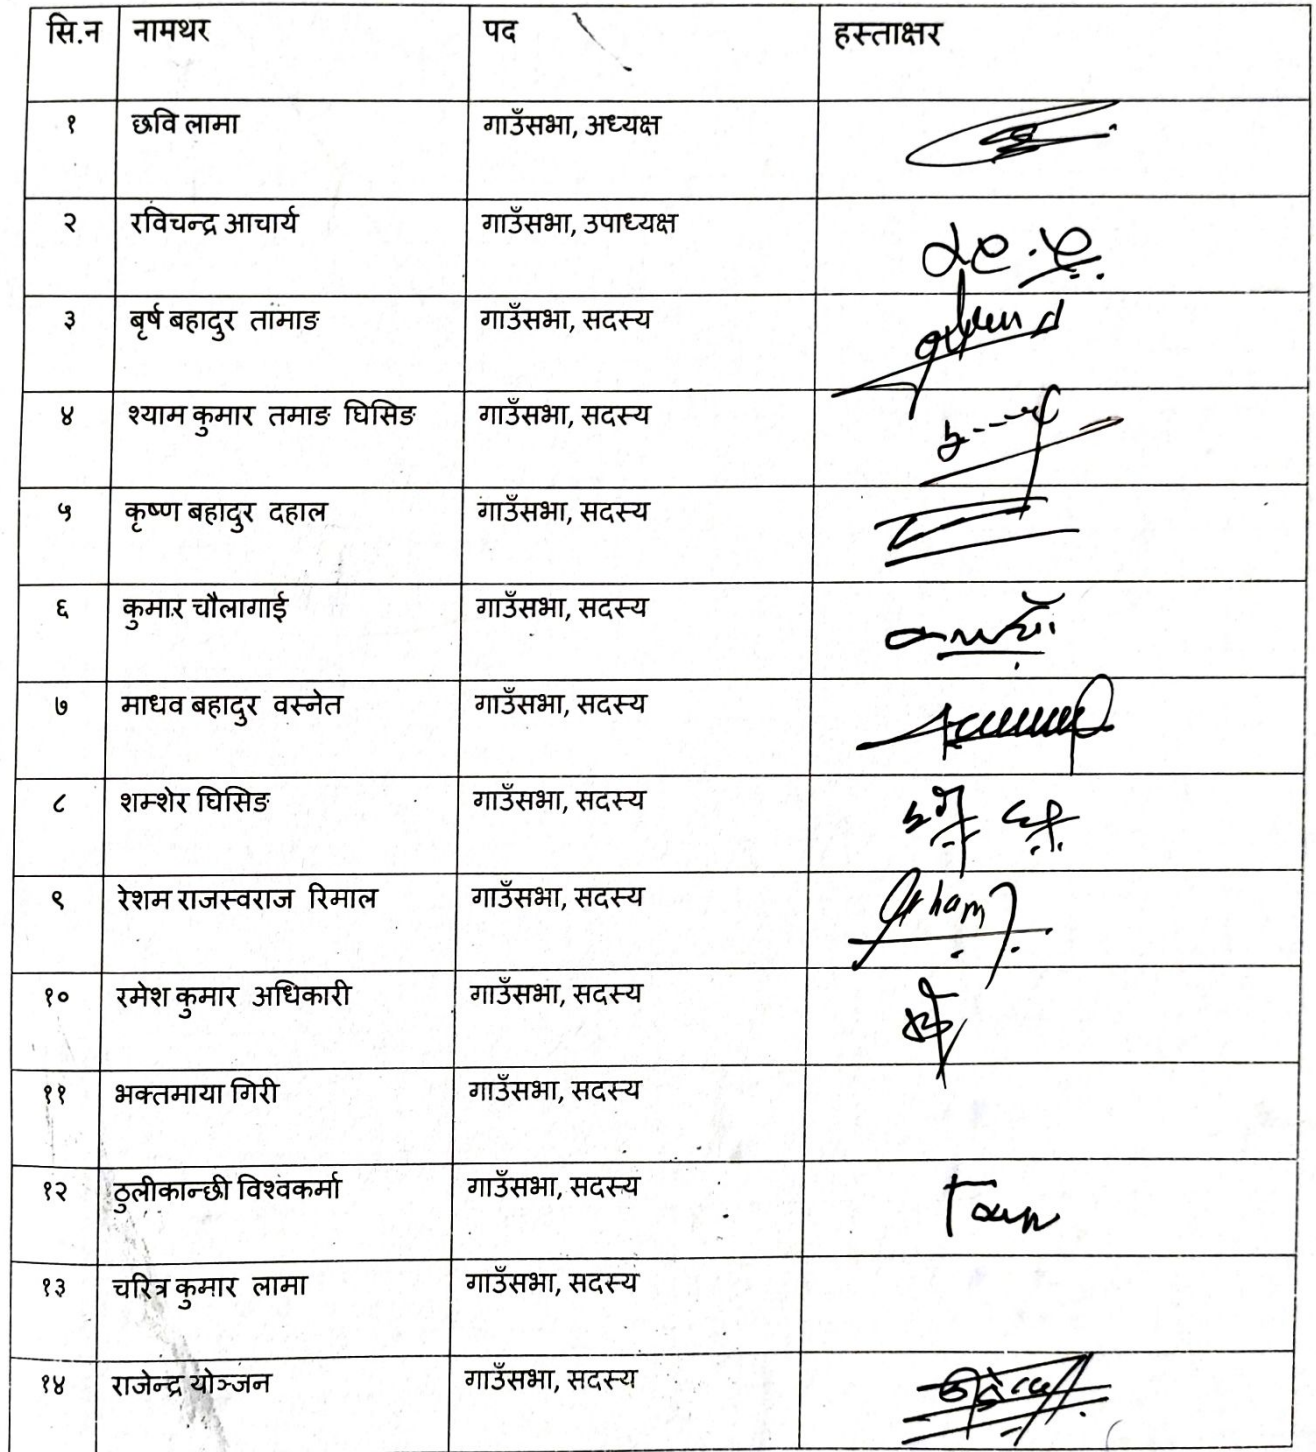 सि.न नामथर पद हस्ताक्षर
१ छवि लामा गाउँसभा, अध्यक्ष
२ रविचन्द्र आचार्य गाउँसभा, उपाध्यक्ष
३ बृर्ष बहादुर तामाङ गाउँसभा, सदस्य
४ श्याम कुमार तमाङ घिसिङ गाउँसभा, सदस्य
५ कृष्ण बहादुर दहाल गाउँसभा, सदस्य
६ कुमार चौलागाई गाउँसभा, सदस्य
७ माधव बहादुर वस्नेत गाउँसभा, सदस्य
८ शम्शेर घिसिङ गाउँसभा, सदस्य
९ रेशम राजस्वराज रिमाल गाउँसभा, सदस्य
१० रमेश कुमार अधिकारी गाउँसभा, सदस्य
११ भक्तमाया गिरी गाउँसभा, सदस्य
१२ ठुलीकान्छी विश्वकर्मा गाउँसभा, सदस्य
१३ चरित्र कुमार लामा गाउँसभा, सदस्य
१४ राजेन्द्र योञ्जन गाउँसभा, सदस्य